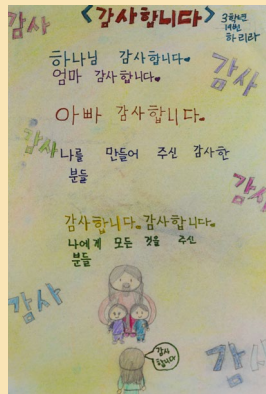 감사
<감사합니다>
3학년
19번
하리라
하나님 감사합니다.
엄마 감사합니다.
감사
아빠 감사합니다.
감사
나를 만들어 주신 감사한
분들
감사
감사합니다. 감사합니다.
나에게 모든 것을 주신
분들
감사
감사
합니다
감사